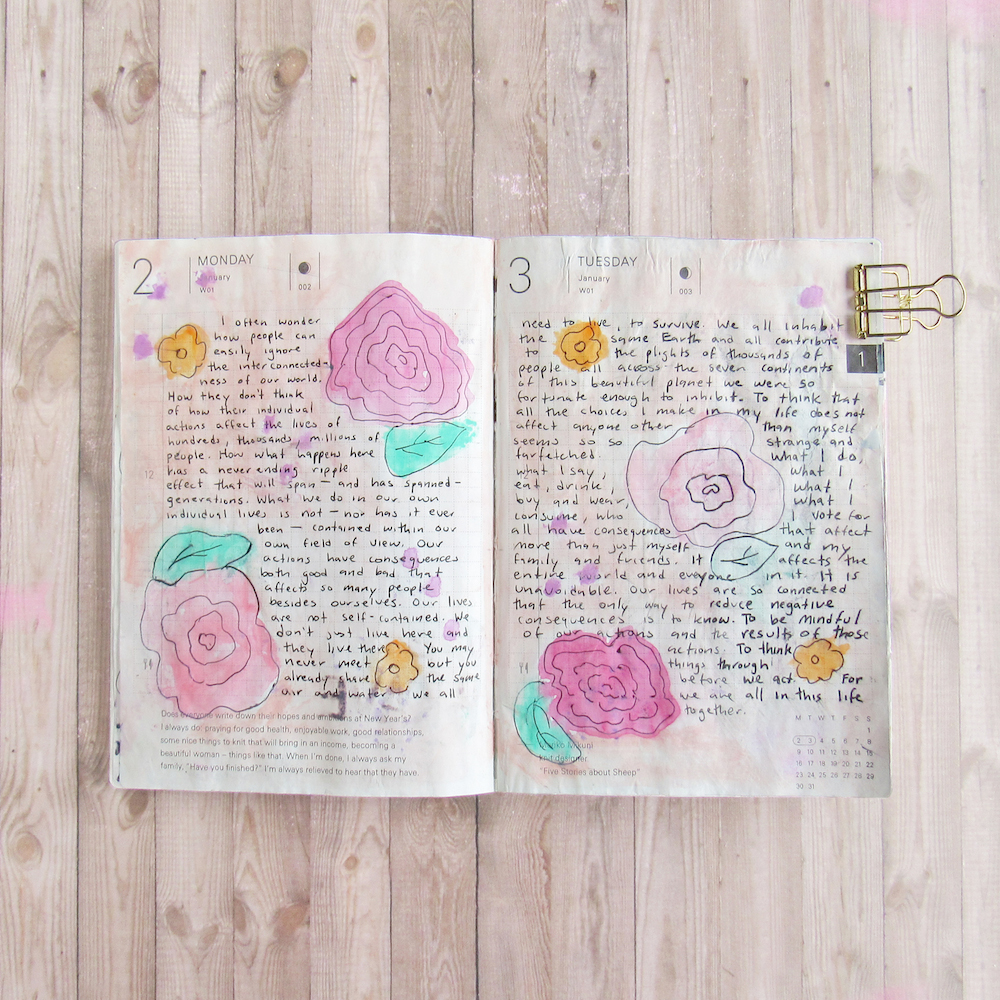 2
MONDAY
January
W01
002
I often wonder
how people can
easily ignore
the interconnected-
ness of our world.
How they don't think
of how their individual
actions affect the lives of
hundreds, thousands, millions of
people. How what happens here
12
has a never ending ripple
effect that will span — and has spanned —
generations. What we do in our own
individual lives is not — nor has it ever
been — contained within our
own field of view. Our
actions have consequences
both good and bad that
affects so many people
besides ourselves. Our lives
are not self-contained. We
don't just live here and
they live there. You may
never meet but you
already share the same
air and water. We all
Does everyone write down their hopes and ambitions at New Year's?
I always do: praying for good health, enjoyable work, good relationships,
some nice things to knit that will bring in an income, becoming a
beautiful woman – things like that. When I'm done, I always ask my
family, "Have you finished?" I'm always relieved to hear that they have.
3
TUESDAY
January
W01
003
1
need to live, to survive. We all inhabit
the same Earth and all contribute
to the plights of thousands of
people all across the seven continents
of this beautiful planet we were so
fortunate enough to inhibit. To think that
all the choices I make in my life does not
affect anyone other than myself
seems so so strange and
farfetched. What I do,
what I say, what I
eat, drink, what I
buy and wear, what I
consume, who I vote for
all have consequences that affect
more than just myself and my
family and friends. It affects the
entire world and everyone in it. It is
unavoidable. Our lives are so connected
that the only way to reduce negative
consequences is to know. To be mindful
of our actions and the results of those
actions. To think
things through
before we act. For
we are all in this life
together.
"Five Stories about Sheep"
M T W T F S S
1
2 3 4 5 6 7 8
9 10 11 12 13 14 15
16 17 18 19 20 21 22
23 24 25 26 27 28 29
30 31